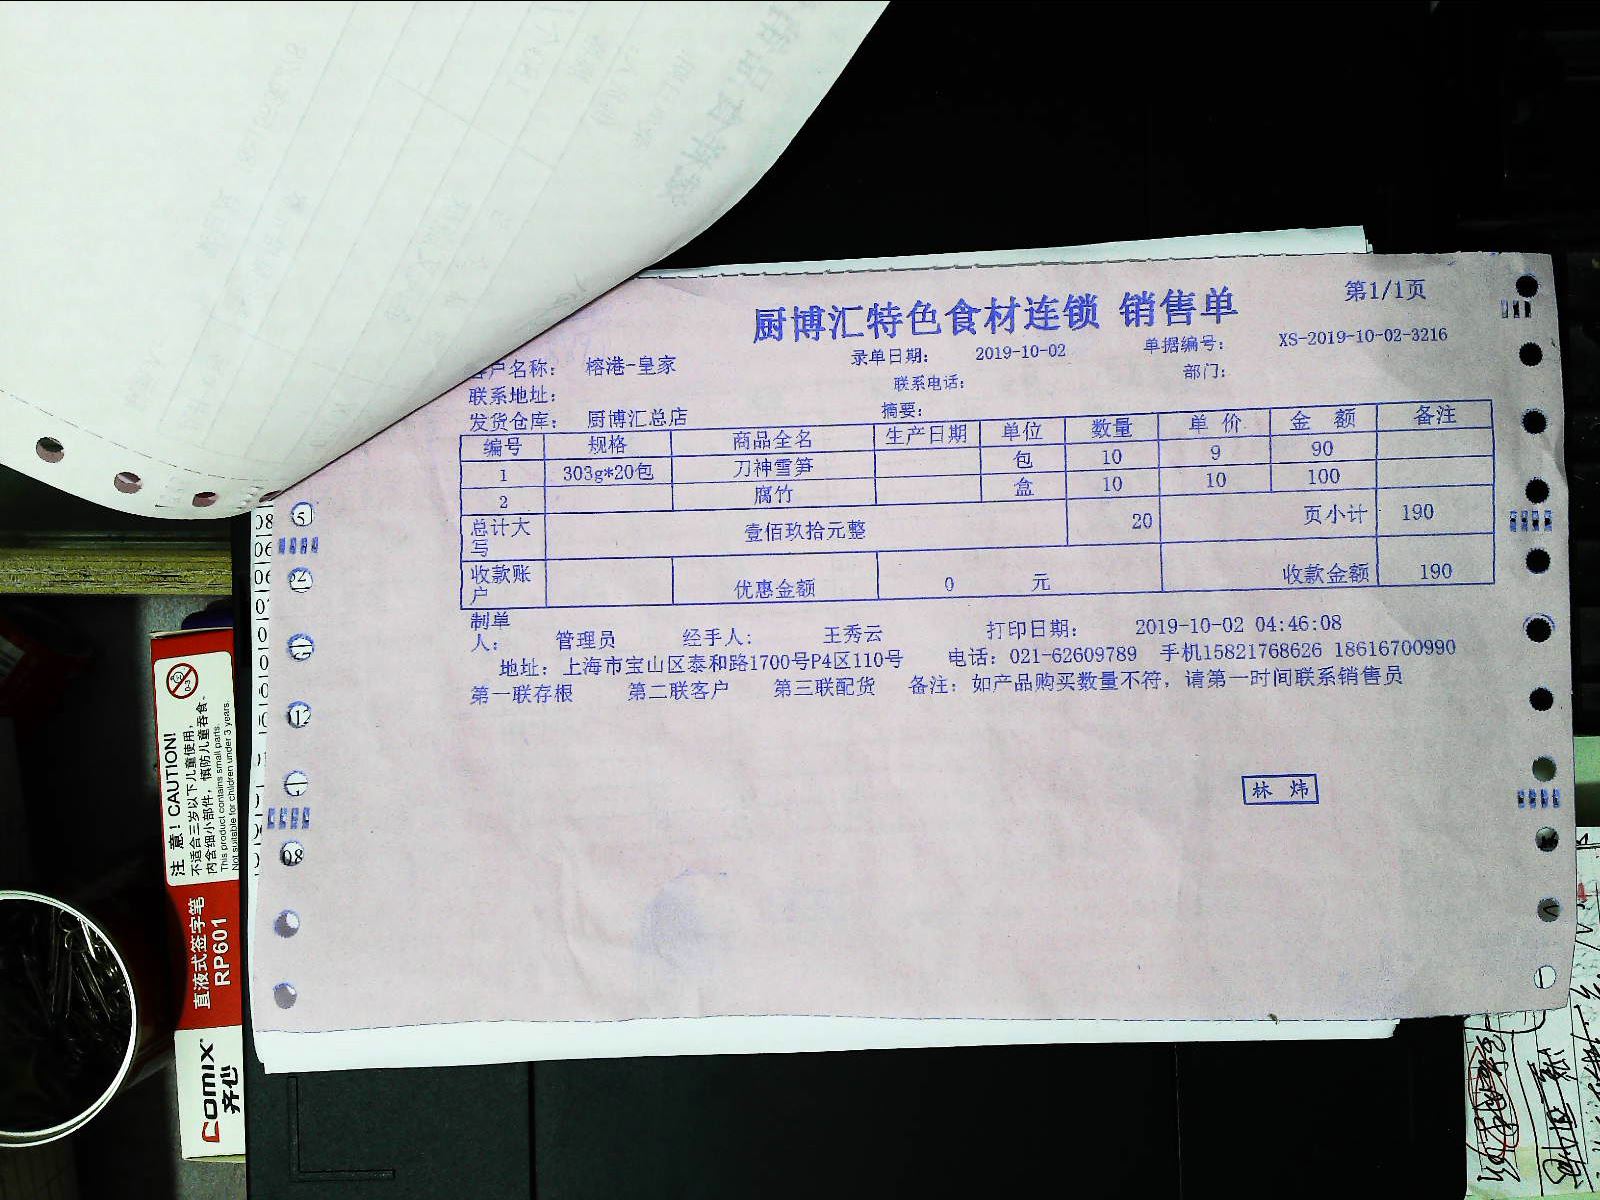 厨博汇特色食材连锁 销售单
第1/1页
客户名称： 榕港-皇家 录单日期： 2019-10-02 单据编号： XS-2019-10-02-3216
联系地址： 联系电话： 部门：
发货仓库： 厨博汇总店 摘要：
编号 规格 商品全名 生产日期 单位 数量 单 价 金 额 备注
1 303g*20包 刀神雪笋 包 10 9 90
2 腐竹 盒 10 10 100
总计大写 壹佰玖拾元整 20 页小计 190
收款账户 优惠金额 0 元 收款金额 190
制单人： 管理员 经手人： 王秀云 打印日期： 2019-10-02 04:46:08
地址：上海市宝山区泰和路1700号P4区110号 电话：021-62609789 手机15821768626 18616700990
第一联存根 第二联客户 第三联配货 备注：如产品购买数量不符，请第一时间联系销售员
林 炜
注 意！CAUTION!
不适合三岁以下儿童使用，
内含细小部件，慎防儿童吞食。
This product contains small parts.
Not suitable for children under 3 years.
0-3
直液式签字笔
RP601
Comix
齐心